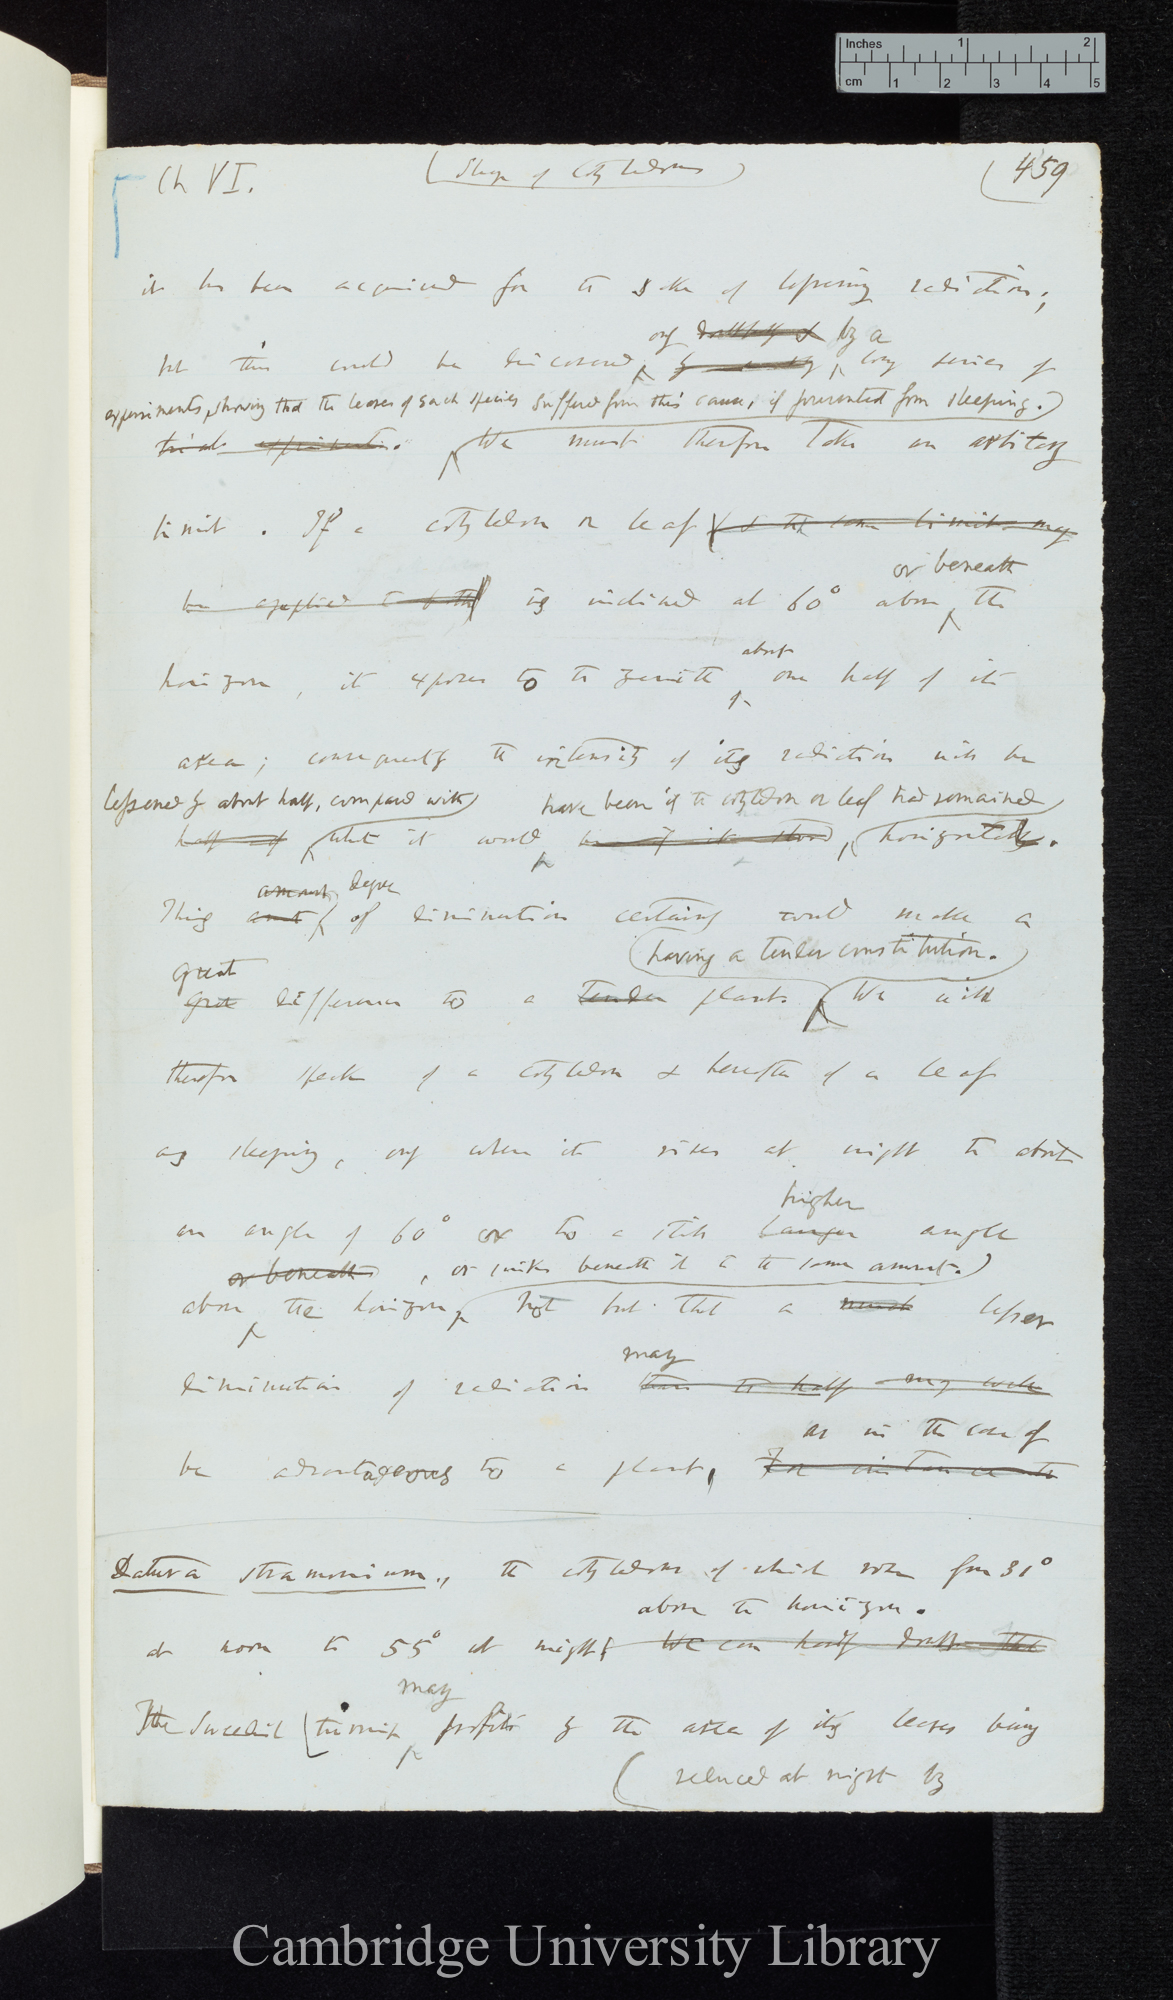 Inches 1 2
cm 1 2 3 4 5
Ch VI.
(Sleep of Cotyledons)
(459
it has been acquired for the sake of lessening radiation;
only doubtfully & by a
but this could be discovered, by long series of
experiments, showing that the leaves of each species suffered from this cause, if prevented from sleeping.)
trials experiments. We must therefore take an arbitrary
limit. If a cotyledon or leaf (& the same limit may
or beneath
be applied to both) is inclined at 60° above the
about
horizon, it exposes to the zenith one half of its
area; consequently the intensity of its radiation will be
lessened by about half, compared with) have been if the cotyledon or leaf had remained)
half of what it would be if it stood, horizontal.
amount degree
This amt of diminution certainly would make a
(having a tender constitution.)
great
great difference to a tender plant. We will
therefore speak of a cotyledon & hereafter of a leaf
as sleeping, only when it rises at night to about
higher
an angle of 60° or to a still larger angle
or beneath, or sinks beneath it to the same amount.)
above the horizon, Not but that a much lesser
may
diminution of radiation than to half may well
as in the case of
be advantageous to a plant, For instance the
Datura stramonium, the cotyledons of which rose from 31°
above the horizon.
at noon to 55° at night; We can hardly doubt that
may
The Swedish turnip profits by the area of its leaves being
(reduced at night by
Cambridge University Library